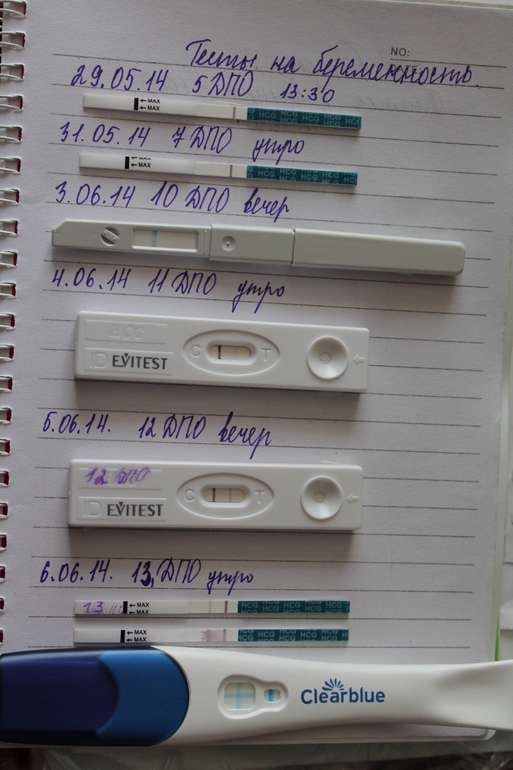 NO:
Тесты на беременность.
29.05.14 5 ДПО 13:30
←MAX
←MAX
HCG HCG HCG HCG
HCG HCG HCG HCG
31.05.14 7 ДПО утро
←MAX
←MAX
HCG HCG HCG HCG
HCG HCG HCG HCG
3.06.14 10 ДПО вечер
4.06.14 11 ДПО утро
HCG
C T
EVITEST
5.06.14. 12 ДПО вечер
12 ДПО
C T
EVITEST
6.06.14. 13 ДПО утро
13
←MAX
←MAX
HCG HCG HCG HCG
HCG HCG HCG HCG
←MAX
←MAX
HCG HCG HCG HCG
HCG HCG HCG HCG
Clearblue